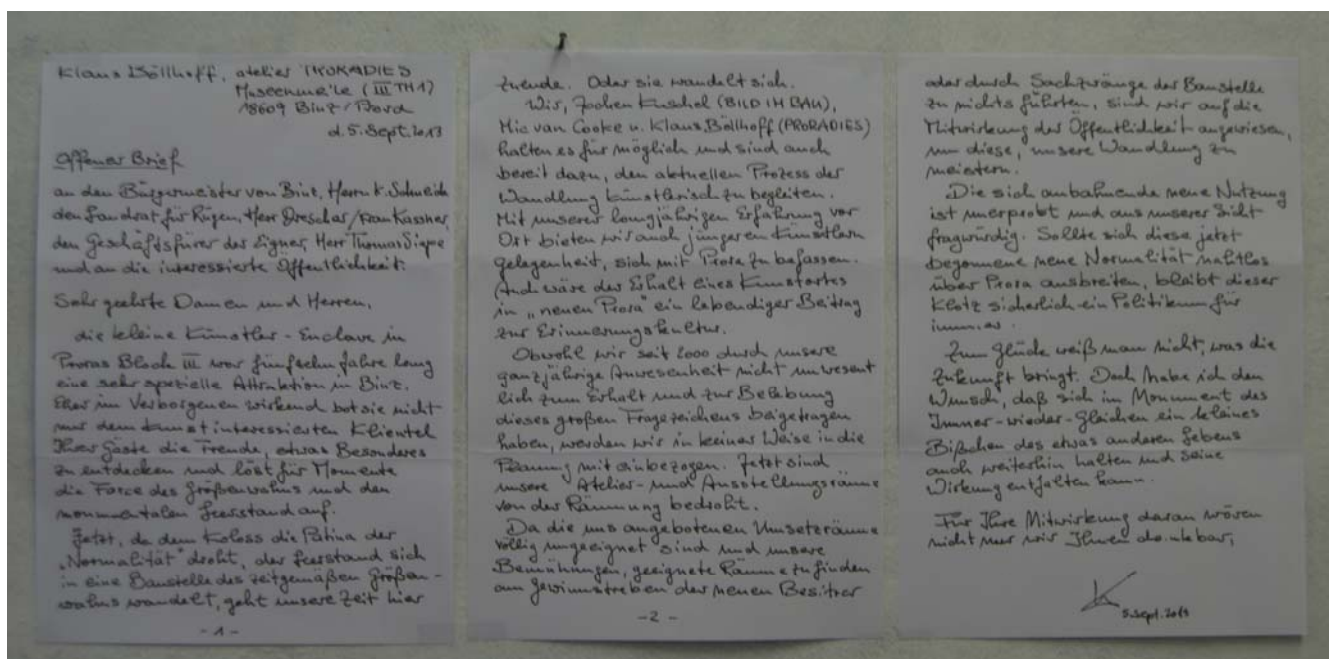 Klaus Böllhoff, atelier PRORADIES
Museenmeile (III TH1)
18609 Binz / Prora
d. 5. Sept. 2013
Offener Brief
an den Bürgermeister von Binz, Herrn K. Schneider
den Landrat für Rügen, Herr Drescher / Frau Kassner,
den Geschäftsfürer der Eigner, Herr Thomas
und an die interessierte Öffentlichkeit.
Sehr geehrte Damen und Herren,
die kleine Künstler-Enclave in
Proras Block III war fünfzehn Jahre lang
eine sehr spezielle Attraktion in Binz.
Eher im Verborgenen wirkend bot sie nicht
nur dem kunstinteressierten Klientel
Ihrer Gäste die Freude, etwas Besonderes
zu entdecken und löst für Momente
die Farce des Größenwahns und den
monumentalen Leerstand auf.
Jetzt, da dem Koloss die Patina der
„Normalität" droht, der Leerstand sich
in eine Baustelle des zeitgemäßen Größen-
wahns wandelt, geht unsere Zeit hier
- 1 -
zuende. Oder sie wandelt sich.
Wir, Jochen Kuschel (BILD IM BAU),
Mic van Cooke u. Klaus Böllhoff (PRORADIES)
halten es für möglich und sind auch
bereit dazu, den aktuellen Prozess der
Wandlung künstlerisch zu begleiten.
Mit unserer langjährigen Erfahrung vor
Ort bieten wir auch jüngeren Künstlern
gelegenheit, sich mit Prora zu befassen.
Auch wäre der Erhalt eines Kunstortes
in „neuen Prora" ein lebendiger Beitrag
zur Erinnerungskultur.
Obwohl wir seit 2000 durch unsere
ganzjährige Anwesenheit nicht unwesent
lich zum Erhalt und zur Belebung
dieses großen Fragezeichens beigetragen
haben, werden wir in keiner Weise in die
Planung mit einbezogen. Jetzt sind
unsere Atelier- und Ausstellungsräume
von der Räumung bedroht.
Da die uns angebotenen Umsetzräume
völlig ungeeignet sind und unsere
Bemühungen, geeignete Räume zu finden
am Gewinnstreben der neuen Besitzer
- 2 -
oder durch Sachzwänge der Baustelle
zu nichts führten, sind wir auf die
Mitwirkung der Öffentlichkeit angewiesen,
um diese, unsere Wandlung zu
meistern.
Die sich anbahnende neue Nutzung
ist unerprobt und aus unserer Sicht
fragwürdig. Sollte sich diese jetzt
begonnene neue Normalität nahtlos
über Prora ausbreiten, bleibt dieser
Klotz sicherlich ein Politikum für
immer.
Zum Glück weiß man nicht, was die
Zukunft bringt. Doch habe ich den
Wunsch, daß sich im Monument des
Immer-wieder-Gleichen ein kleines
Bißchen des etwas anderen Lebens
auch weiterhin halten und seine
Wirkung entfalten kann.
Für Ihre Mitwirkung daran wären
nicht nur wir Ihnen dankbar,
5. Sept. 2013